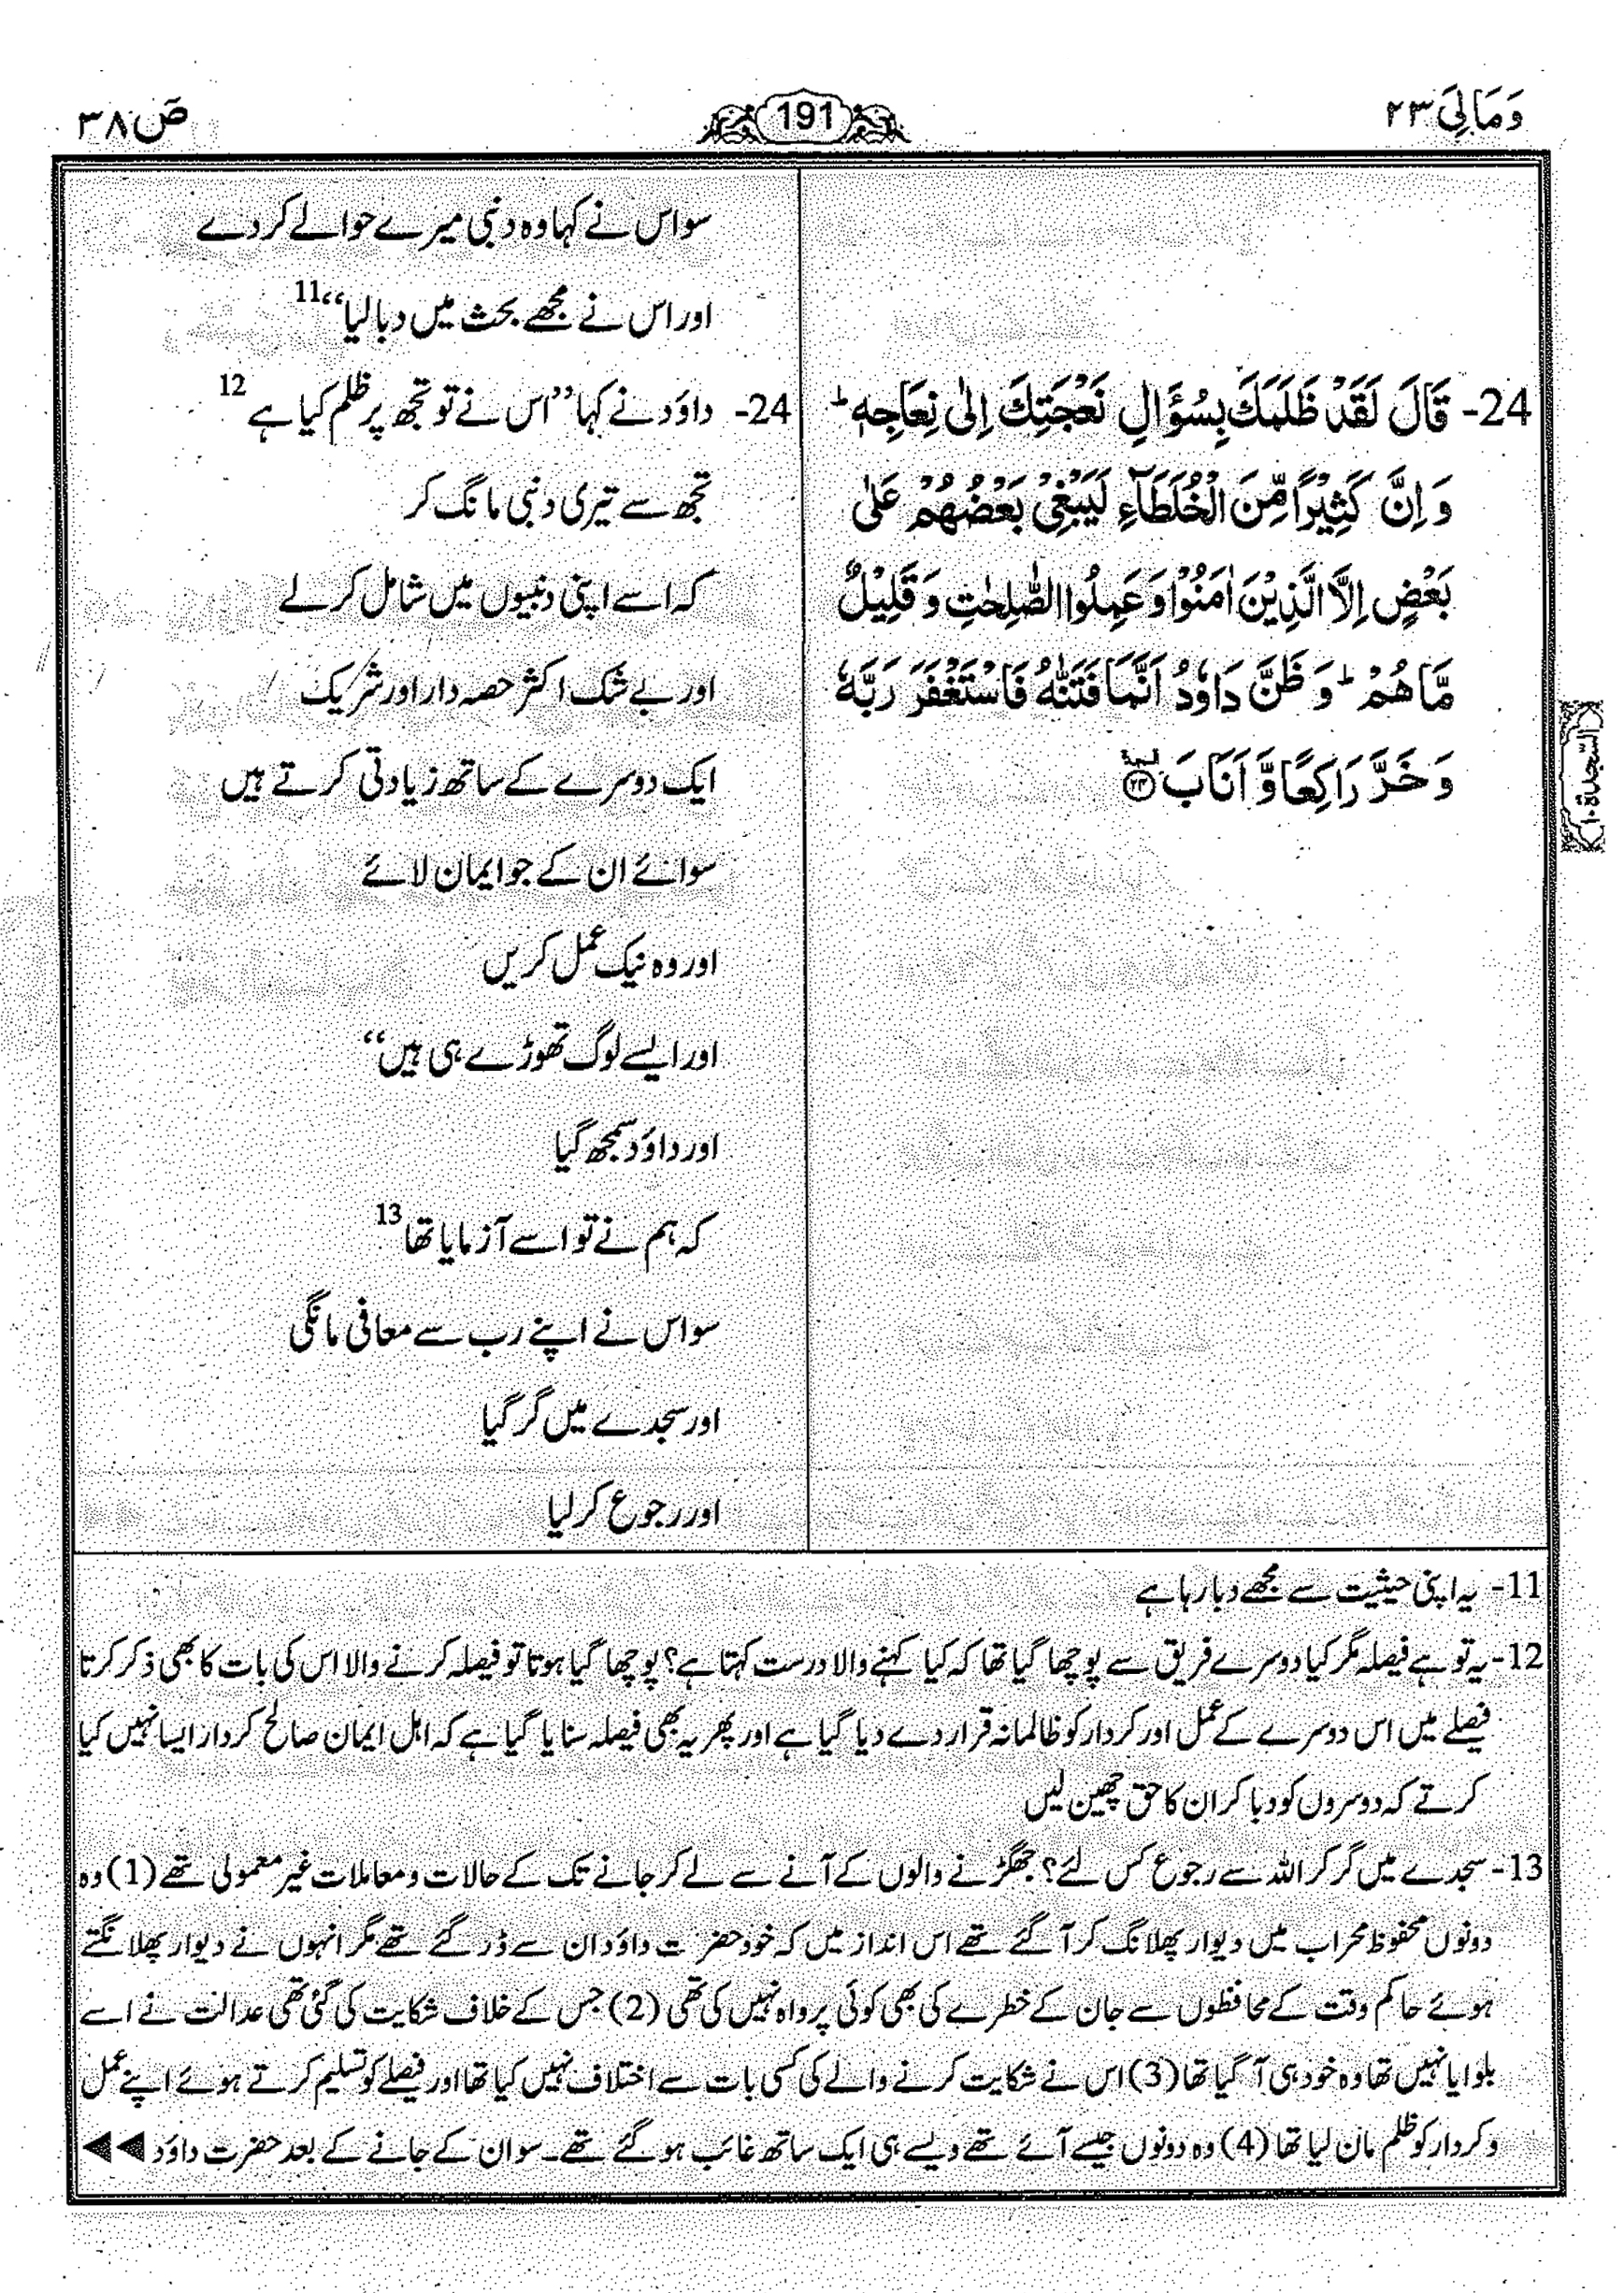 وَمَالِیَ ۲۳
191
صٓ ۳۸
24- قَالَ لَقَدْ ظَلَمَكَ بِسُؤَالِ نَعْجَتِكَ اِلٰى نِعَاجِهٖ ؕ
وَ اِنَّ كَثِیْرًا مِّنَ الْخُلَطَآءِ لَیَبْغِیْ بَعْضُهُمْ عَلٰى
بَعْضٍ اِلَّا الَّذِیْنَ اٰمَنُوْا وَ عَمِلُوا الصّٰلِحٰتِ وَ قَلِیْلٌ
مَّا هُمْ ؕ وَ ظَنَّ دَاوٗدُ اَنَّمَا فَتَنّٰهُ فَاسْتَغْفَرَ رَبَّهٗ
وَ خَرَّ رَاكِعًا وَّ اَنَابَ ۩ ﴿۲۴﴾
السّجدة ۱۰
سو اس نے کہا وہ دنبی میرے حوالے کر دے
اور اس نے مجھے بحث میں دبا لیا“ 11
24- داوَد نے کہا ”اس نے تو تجھ پر ظلم کیا ہے 12
تجھ سے تیری دنبی مانگ کر
کہ اسے اپنی دنبیوں میں شامل کر لے
اور بے شک اکثر حصہ دار اور شریک
ایک دوسرے کے ساتھ زیادتی کرتے ہیں
سوائے ان کے جو ایمان لائے
اور وہ نیک عمل کریں
اور ایسے لوگ تھوڑے ہی ہیں“
اور داوَد سمجھ گیا
کہ ہم نے تو اسے آزمایا تھا 13
سو اس نے اپنے رب سے معافی مانگی
اور سجدے میں گر گیا
اور رجوع کر لیا
11- یہ اپنی حیثیت سے مجھے دبا رہا ہے
12- یہ تو ہے فیصلہ مگر کیا دوسرے فریق سے پوچھا گیا تھا کہ کیا کہنے والا درست کہتا ہے؟ پوچھا گیا ہوتا تو فیصلہ کرنے والا اس کی بات کا بھی ذکر کرتا
فیصلے میں اس دوسرے کے عمل اور کردار کو ظالمانہ قرار دے دیا گیا ہے اور پھر یہ بھی فیصلہ سنایا گیا ہے کہ اہل ایمان صالح کردار ایسا نہیں کیا
کرتے کہ دوسروں کو دبا کر ان کا حق چھین لیں
13- سجدے میں گر کر اللہ سے رجوع کس لئے؟ جھگڑنے والوں کے آنے سے لے کر جانے تک کے حالات و معاملات غیر معمولی تھے (1) وہ
دونوں محفوظ محراب میں دیوار پھلانگ کر آ گئے تھے اس انداز میں کہ خود حضرت داوَد ان سے ڈر گئے تھے مگر انہوں نے دیوار پھلانگتے
ہوئے حاکم وقت کے محافظوں سے جان کے خطرے کی بھی کوئی پرواہ نہیں کی تھی (2) جس کے خلاف شکایت کی گئی تھی عدالت نے اسے
بلوایا نہیں تھا وہ خود ہی آ گیا تھا (3) اس نے شکایت کرنے والے کی کسی بات سے اختلاف نہیں کیا تھا اور فیصلے کو تسلیم کرتے ہوئے اپنے عمل
و کردار کو ظلم مان لیا تھا (4) وہ دونوں جیسے آئے تھے ویسے ہی ایک ساتھ غائب ہو گئے تھے۔ سو ان کے جانے کے بعد حضرت داوَد ◄◄